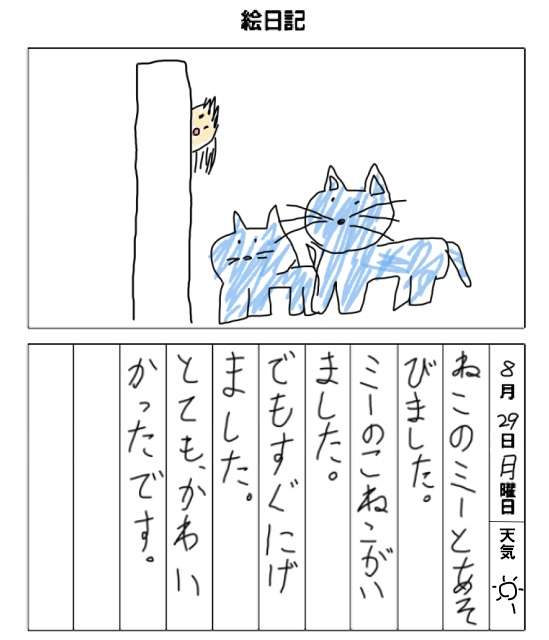 絵日記
8月29日月曜日 天気
ねこのミーとあそ
びました。
ミーのこねこがい
ました。
でもすぐににげ
ました。
とても、かわい
かったです。